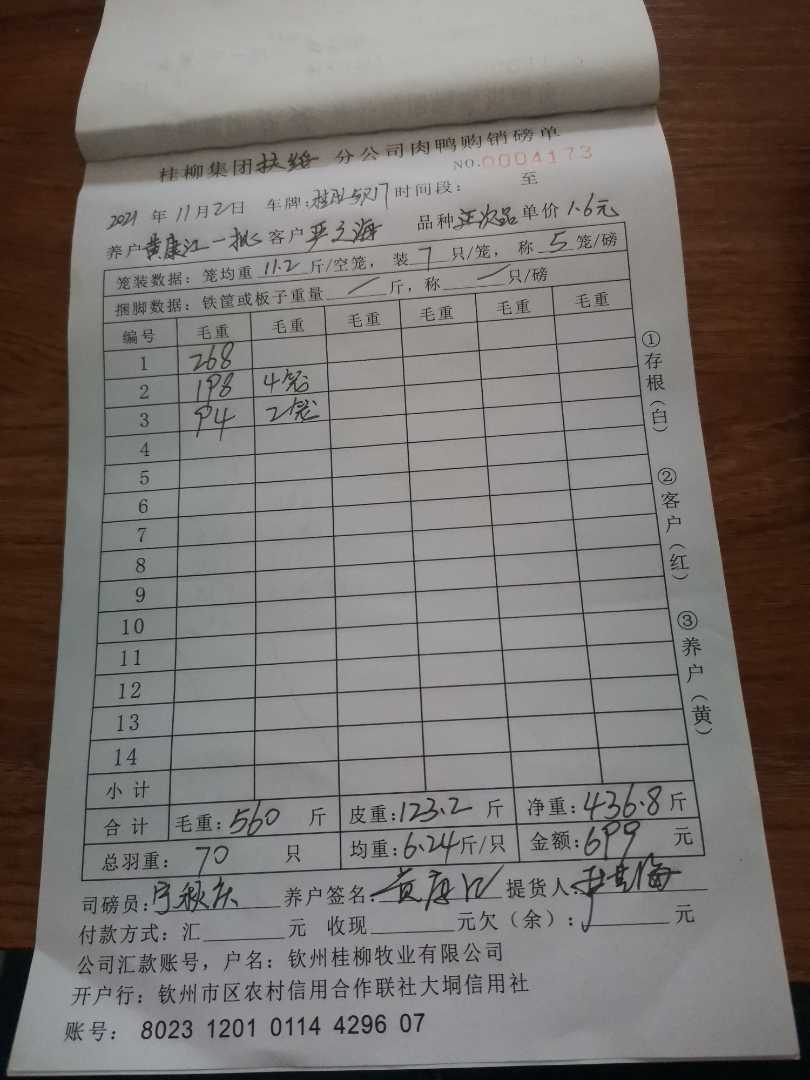 桂柳集团扶绥分公司肉鸭购销磅单
NO.0004173
2021年11月2日 车牌: 时间段: 至
养户黄康江一批 客户严之海 品种正次品 单价1.6元
笼装数据: 笼均重11.2斤/空笼, 装7只/笼, 称5笼/磅
捆脚数据: 铁筐或板子重量/斤, 称/只/磅
编号 毛重 毛重 毛重 毛重 毛重 毛重
1 268
2 198 4笼
3 94 2笼
4
5
6
7
8
9
10
11
12
13
14
小计
合计 毛重:560斤 皮重:123.2斤 净重:436.8斤
总羽重: 70只 均重:6.24斤/只 金额:699元
司磅员:宁秋庆 养户签名: 黄康江 提货人:
付款方式: 汇 元 收现 元欠(余): 元
公司汇款账号, 户名: 钦州桂柳牧业有限公司
开户行: 钦州市区农村信用合作联社大垌信用社
账号: 8023 1201 0114 4296 07
①存根(白)
②客户(红)
③养户(黄)